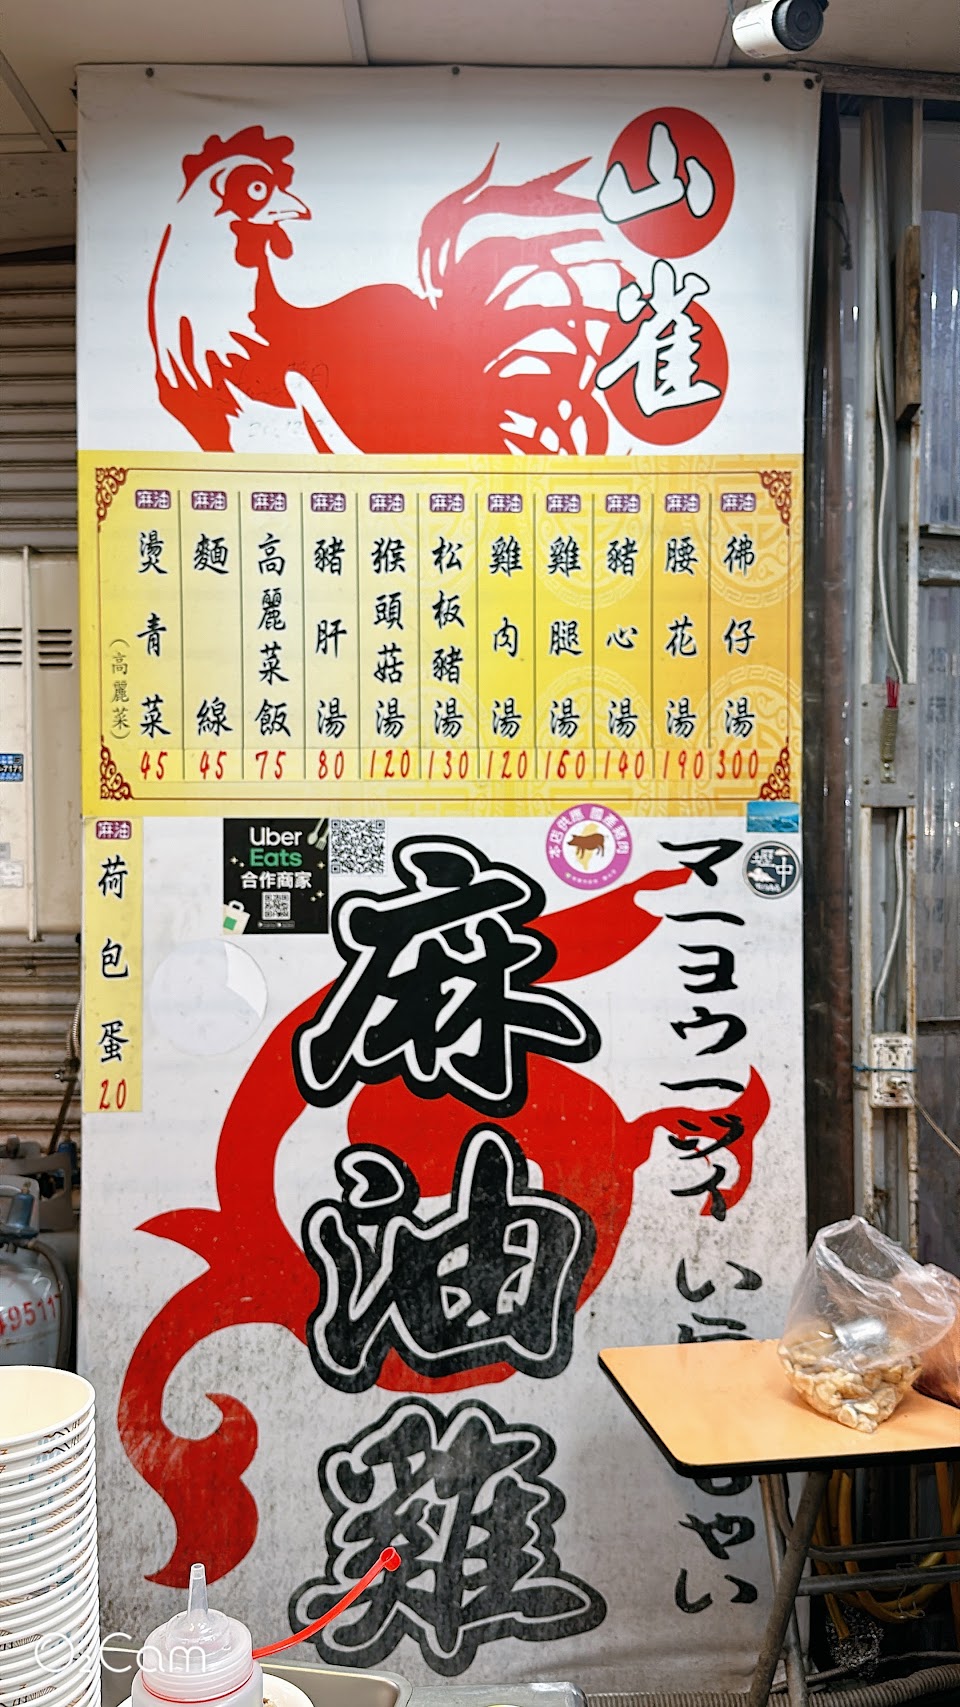 山雀
麻油 彿仔湯 300
麻油 腰花湯 190
麻油 豬心湯 140
麻油 雞腿湯 160
麻油 雞肉湯 120
麻油 松板豬湯 130
麻油 猴頭菇湯 120
麻油 豬肝湯 80
麻油 高麗菜飯 75
麻油 麵線 45
麻油 燙青菜 45
（高麗菜）
麻油 荷包蛋 20
Uber
Eats
合作商家
本店供應 國產豬肉
マーヨウージィ い
やい
麻油雞
49511